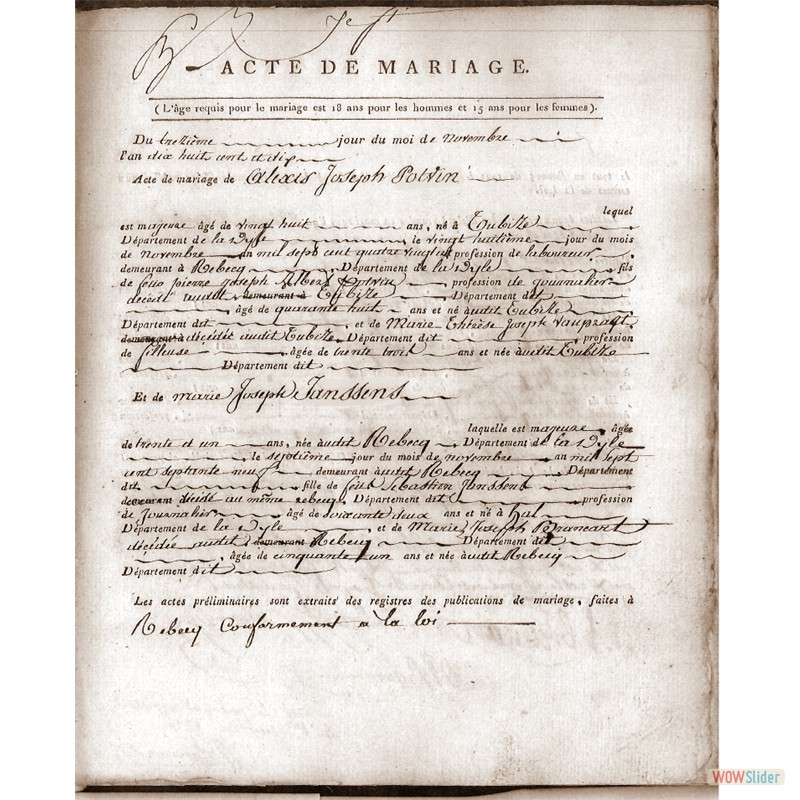 ACTE DE MARIAGE.
(L'âge requis pour le mariage est 18 ans pour les hommes et 15 ans pour les femmes).
Du treizième jour du moi de Novembre
l'an dix huit cent et dix
Acte de mariage de Alexis Joseph Potvin
lequel
est majeure âgé de vingt huit ans, né à Tubize
Département de la Dyle le vingt huitième jour du mois
de novembre an mil sept cent quatre vingt profession de laboureur
demeurant à Rebecq Département de la Dyle fils
de feu pierre Joseph Albert Potvin profession de journalier
décédé audit demeurant à Tubize Département dit
âgé de quarante huit ans et né audit Tubize
Département dit et de Marie Thérèse Joseph
demeurant à décédée audit Tubize Département dit profession
de fileuse âgée de trente trois ans et née audit Tubize
Département dit
Et de marie Joseph Janssens
laquelle est majeure âgée
de trente et un ans, née audit Rebecq Département de la Dyle
le septième jour du mois de novembre an mil sept
cent septante neuf demeurant audit Rebecq Département
dit fille de feu Sébastien Janssens
demeurant décédé au même rebecq Département dit profession
de Journalier âgé de soixante deux ans et né à hal
Département de la Dyle et de Marie Joseph
décédée audit demeurant Rebecq Département dit
âgée de cinquante un ans et née audit Rebecq
Département dit
Les actes préliminaires sont extraits des registres des publications de mariage, faites à
Rebecq Conformement a la loi
WOWSlider